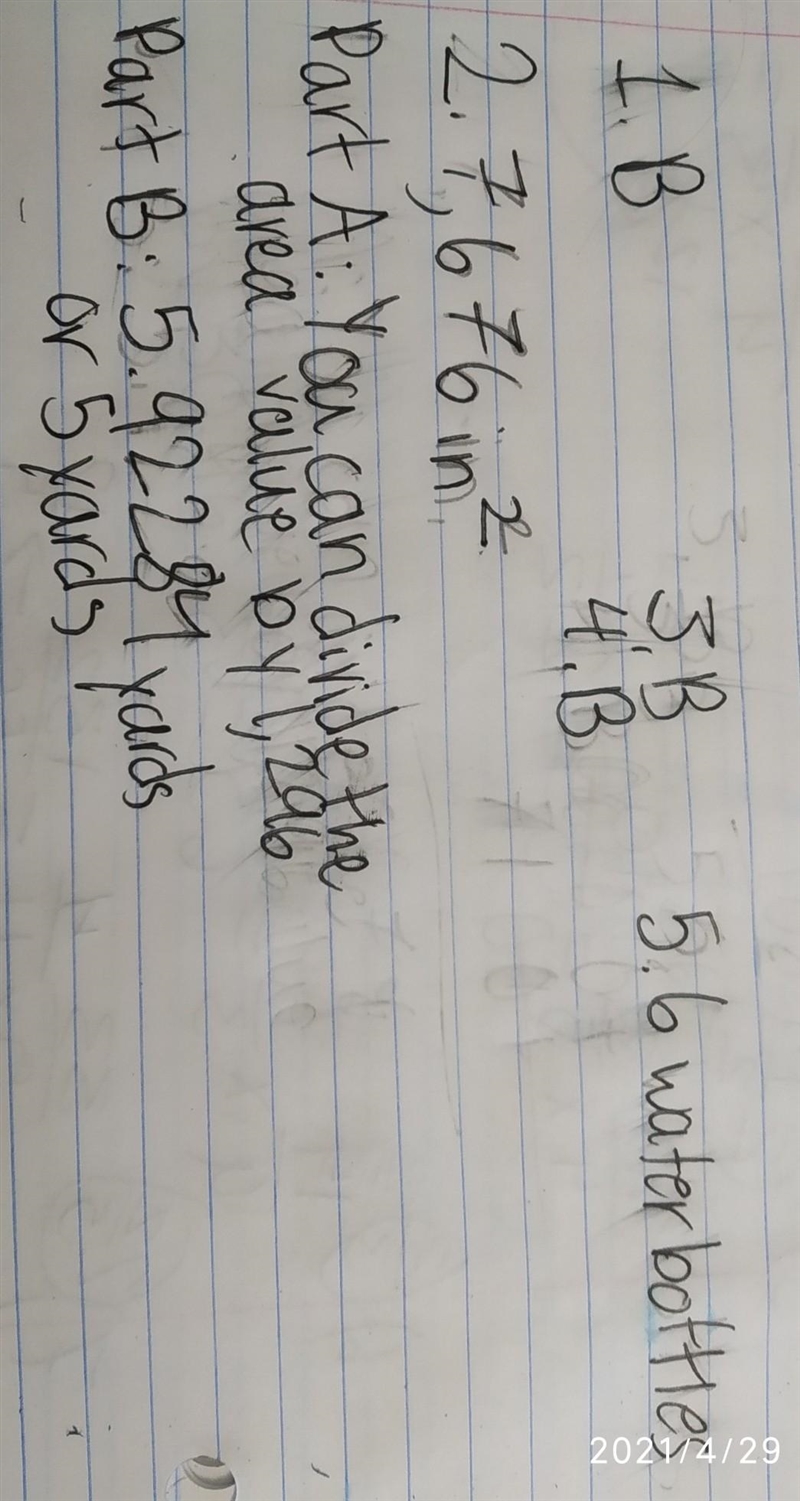 1. B
2. 7,676 in²
Part A: You can divide the
area value by 1,296
Part B: 5.92284 yards
or 5 yards
3. B
4. B
5. 6 water bottles
2021/4/29